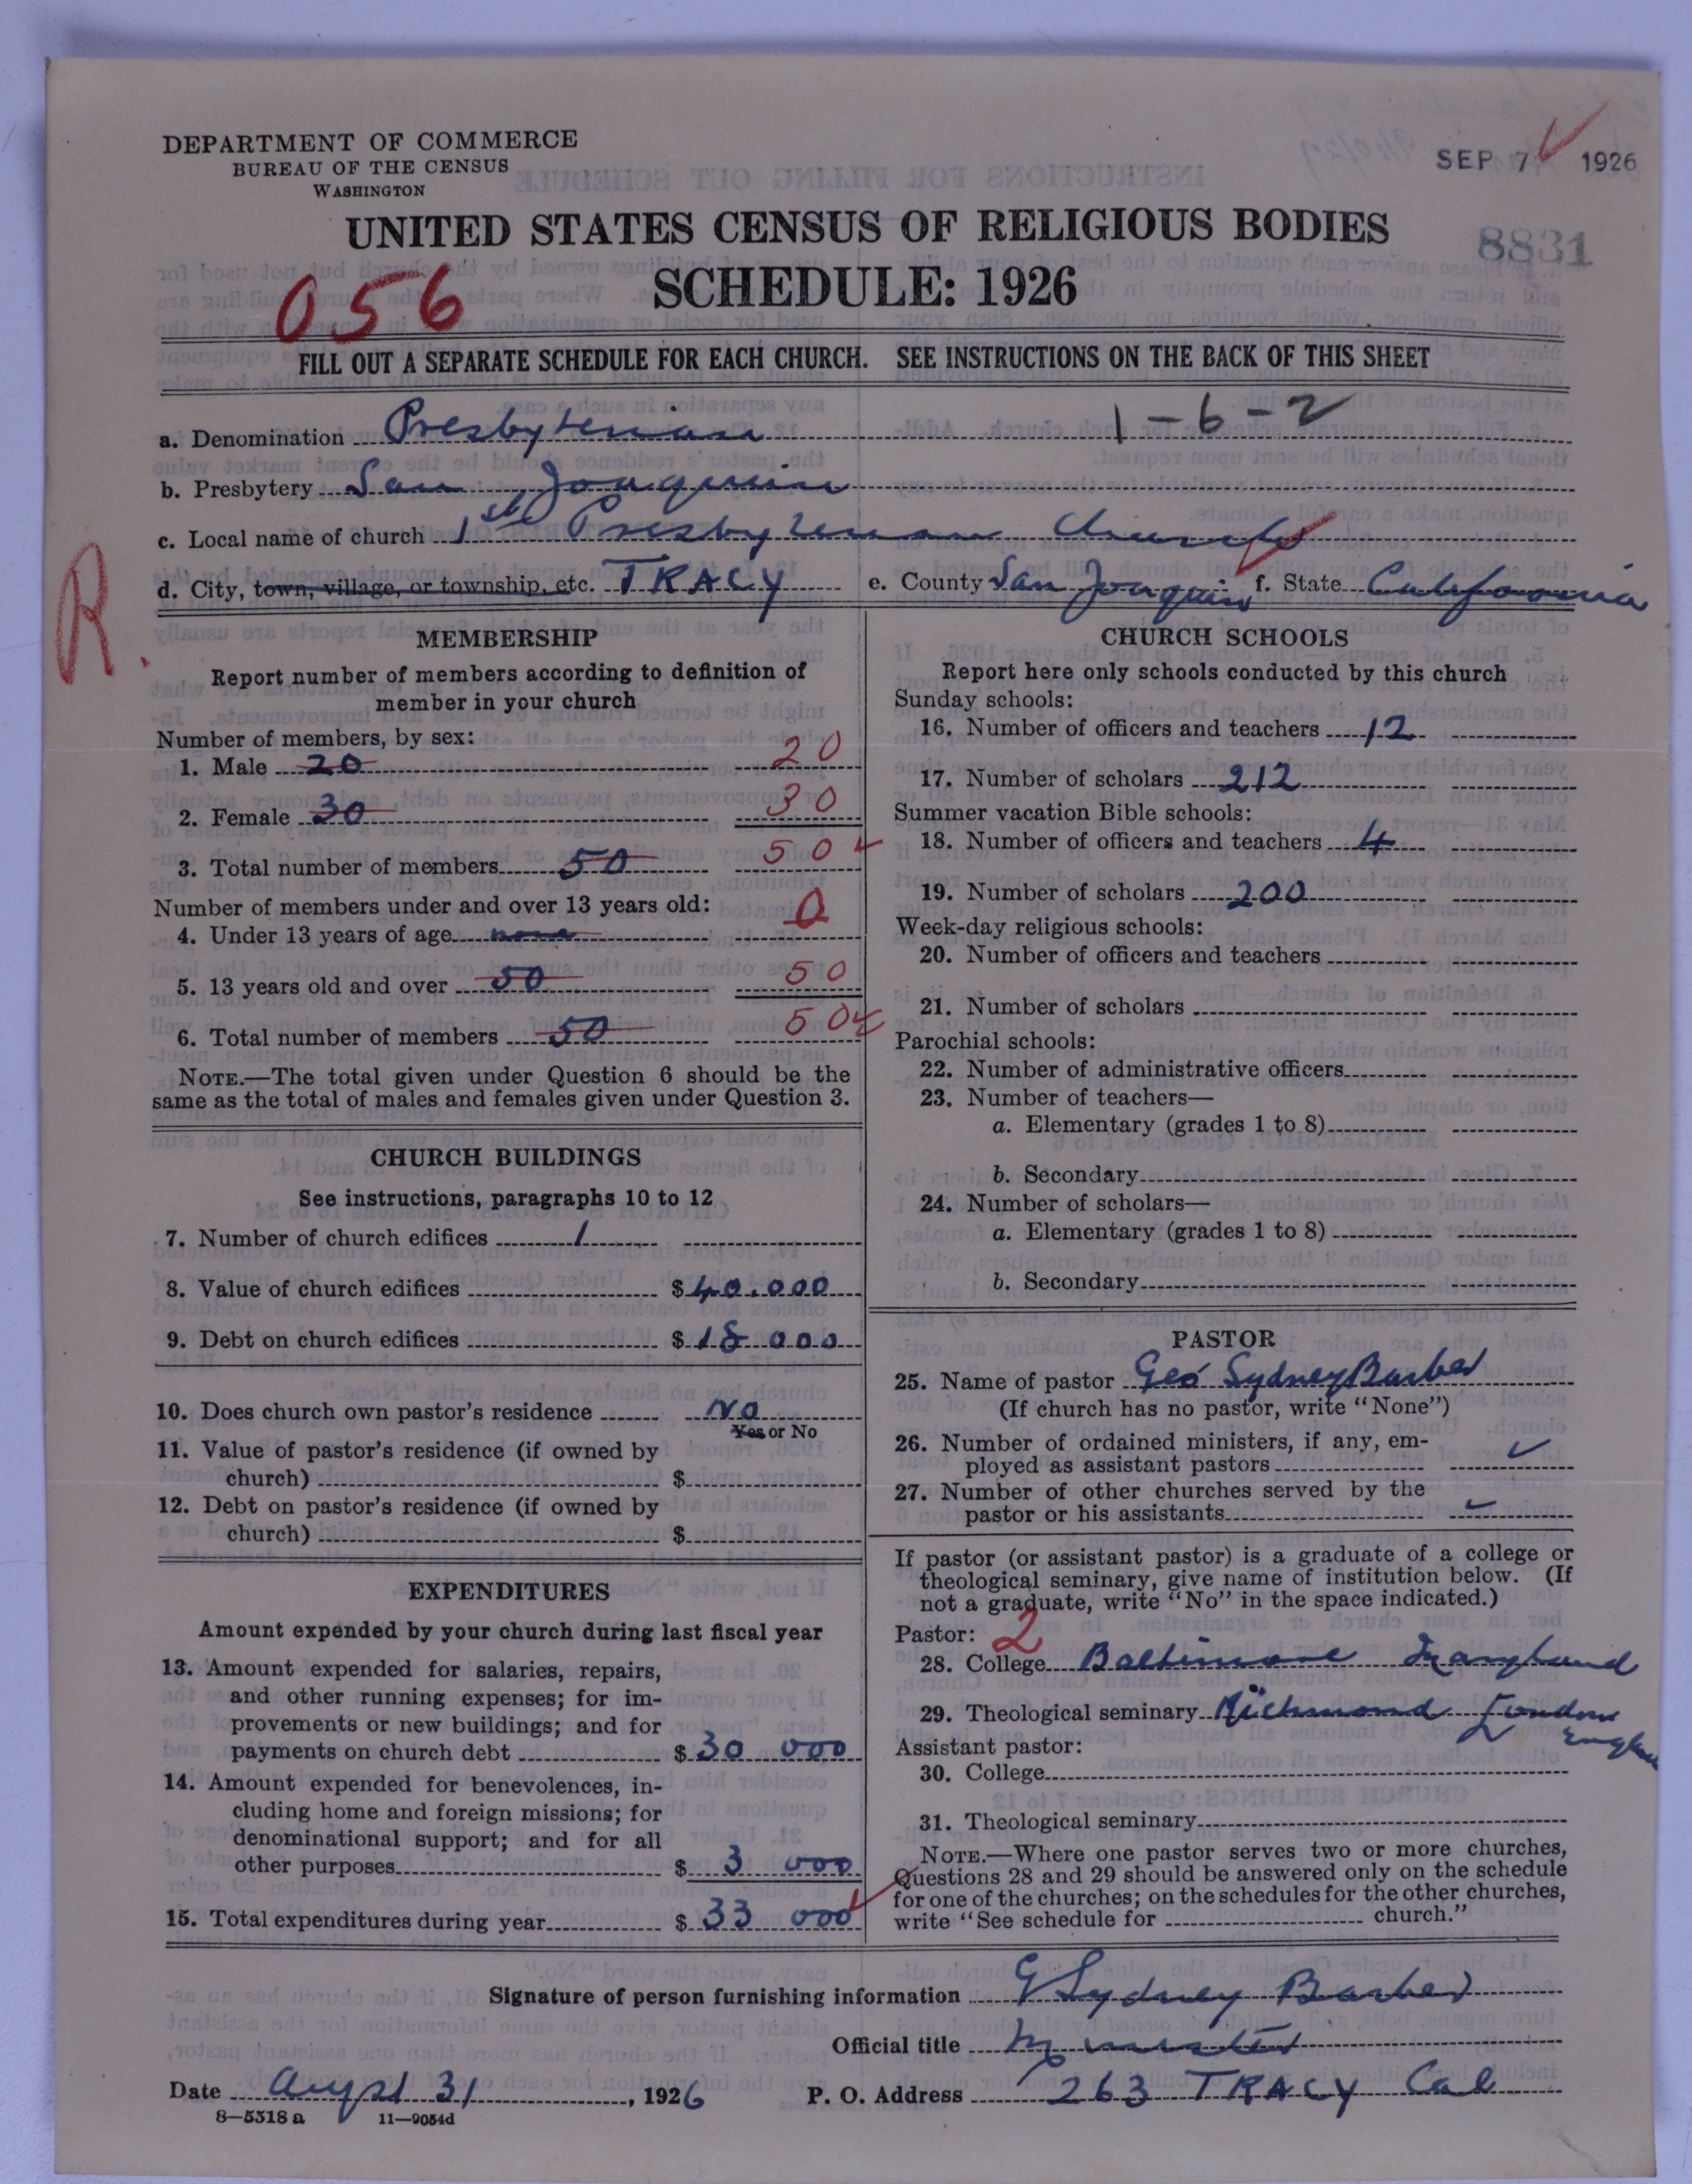 DEPARTMENT OF COMMERCE
BUREAU OF THE CENSUS
WASHINGTON
SEP 7 1926
UNITED STATES CENSUS OF RELIGIOUS BODIES
8831
SCHEDULE: 1926
056
FILL OUT A SEPARATE SCHEDULE FOR EACH CHURCH. SEE INSTRUCTIONS ON THE BACK OF THIS SHEET
a. Denomination Presbyterian 1-6-2
b. Presbytery San Joaquin
c. Local name of church 1st Presbyterian Church
R.
d. City, town, village, or township, etc. TRACY e. County San Joaquin f. State California
MEMBERSHIP
Report number of members according to definition of
member in your church
Number of members, by sex:
1. Male 20 20
2. Female 30 30
3. Total number of members 50 50
Number of members under and over 13 years old:
4. Under 13 years of age none 0
5. 13 years old and over 50 50
6. Total number of members 50 50
NOTE.—The total given under Question 6 should be the
same as the total of males and females given under Question 3.
CHURCH BUILDINGS
See instructions, paragraphs 10 to 12
7. Number of church edifices 1
8. Value of church edifices $ 40.000
9. Debt on church edifices $ 18 000
10. Does church own pastor's residence No
Yes or No
11. Value of pastor's residence (if owned by
church) $
12. Debt on pastor's residence (if owned by
church) $
EXPENDITURES
Amount expended by your church during last fiscal year
13. Amount expended for salaries, repairs,
and other running expenses; for im-
provements or new buildings; and for
payments on church debt $ 30 000
14. Amount expended for benevolences, in-
cluding home and foreign missions; for
denominational support; and for all
other purposes $ 3 000
15. Total expenditures during year $ 33 000
CHURCH SCHOOLS
Report here only schools conducted by this church
Sunday schools:
16. Number of officers and teachers 12
17. Number of scholars 212
Summer vacation Bible schools:
18. Number of officers and teachers 4
19. Number of scholars 200
Week-day religious schools:
20. Number of officers and teachers
21. Number of scholars
Parochial schools:
22. Number of administrative officers
23. Number of teachers—
a. Elementary (grades 1 to 8)
b. Secondary
24. Number of scholars—
a. Elementary (grades 1 to 8)
b. Secondary
PASTOR
25. Name of pastor Geo Sydney Barber
(If church has no pastor, write "None")
26. Number of ordained ministers, if any, em-
ployed as assistant pastors
27. Number of other churches served by the
pastor or his assistants
If pastor (or assistant pastor) is a graduate of a college or
theological seminary, give name of institution below. (If
not a graduate, write "No" in the space indicated.)
Pastor: 2
28. College Baltimore Maryland
29. Theological seminary Richmond London
England
Assistant pastor:
30. College
31. Theological seminary
NOTE.—Where one pastor serves two or more churches,
Questions 28 and 29 should be answered only on the schedule
for one of the churches; on the schedules for the other churches,
write "See schedule for church."
Signature of person furnishing information G Sydney Barber
Official title Minister
Date August 31, 1926 P. O. Address 263 TRACY Cal
8—5318 a 11—9054d